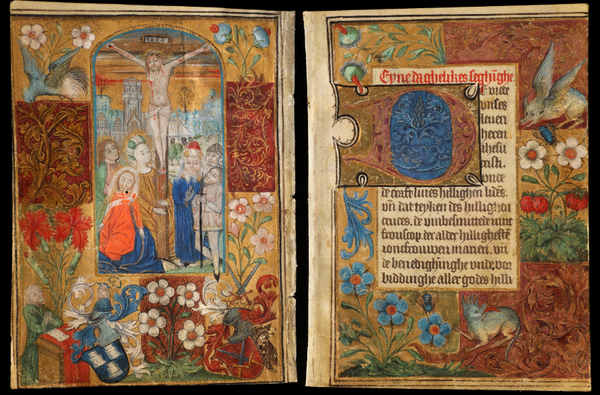 Eyne daghelikes seghīghe
vrece
vnses
leuen
heren
ihesu
cristi.
de craft sines hillighen lides.
vn̄ dat teyken des hillighen
cruces. de vnbesmittede iunc
frouscop der aller hillighestē
ioncfrouwen marien. vn̄
de benedighinghe vnde vor
biddinghe aller godes hilli